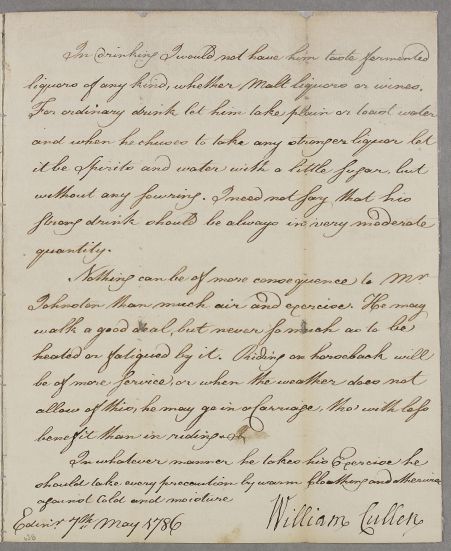 In drinking I would not have him taste fermented
liquors of any kind, whether Malt liquors or wines.
For ordinary drink let him take plain or toast water
and when he chuses to take any stronger liquor let
it be Spirits and water with a little Sugar, but
without any sowring. I need not say that his
strong drink should be always in very moderate
quantity.
Nothing can be of more consequence to Mr
Johnston than much air and exercise. He may
walk a good deal, but never so much as to be
heated or fatigued by it. Riding on horseback will
be of more service, or when the weather does not
allow of this, he may go in a Carriage, tho' with less
benefit than in riding.
In whatever manner he takes his Exercise he
should take every precaution by warm Cloathing and otherwise
against Cold and moisture
Edinr 7th May 1786 William Cullen